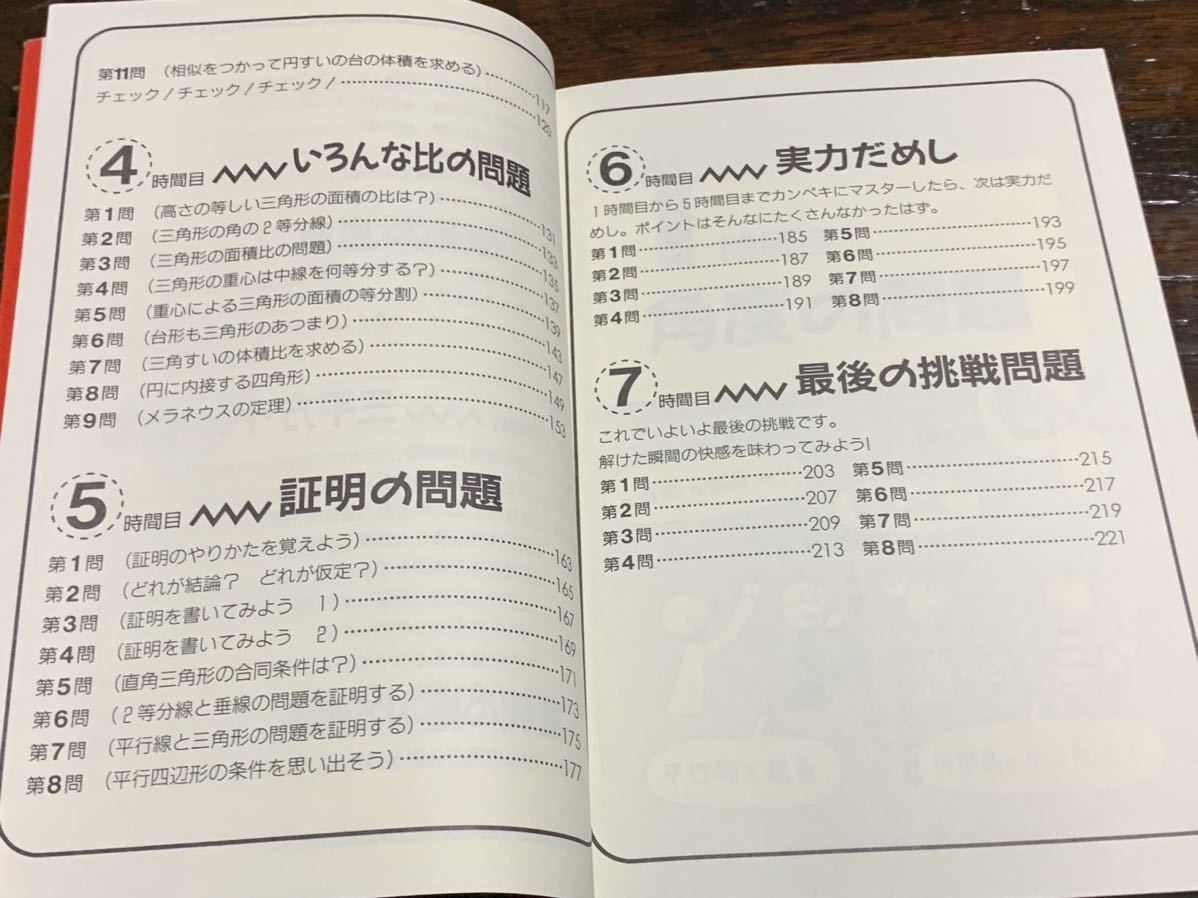 第11問 (相似をつかって円すいの台の体積を求める)……117
チェック!チェック!チェック!……120
4時間目 いろんな比の問題
第1問 (高さの等しい三角形の面積の比は?)……131
第2問 (三角形の角の2等分線)……133
第3問 (三角形の面積比の問題)……135
第4問 (三角形の重心は中線を何等分する?)……137
第5問 (重心による三角形の面積の等分割)……139
第6問 (台形も三角形のあつまり)……143
第7問 (三角すいの体積比を求める)……147
第8問 (円に内接する四角形)……149
第9問 (メラネウスの定理)……153
5時間目 証明の問題
第1問 (証明のやりかたを覚えよう)……163
第2問 (どれが結論? どれが仮定?)……165
第3問 (証明を書いてみよう 1)……167
第4問 (証明を書いてみよう 2)……169
第5問 (直角三角形の合同条件は?)……171
第6問 (2等分線と垂線の問題を証明する)……173
第7問 (平行線と三角形の問題を証明する)……175
第8問 (平行四辺形の条件を思い出そう)……177
6時間目 実力だめし
1時間目から5時間目までカンペキにマスターしたら、次は実力だ
めし。ポイントはそんなにたくさんなかったはず。
第1問……185 第5問……193
第2問……187 第6問……195
第3問……189 第7問……197
第4問……191 第8問……199
7時間目 最後の挑戦問題
これでいよいよ最後の挑戦です。
解けた瞬間の快感を味わってみよう!
第1問……203 第5問……215
第2問……207 第6問……217
第3問……209 第7問……219
第4問……213 第8問……221